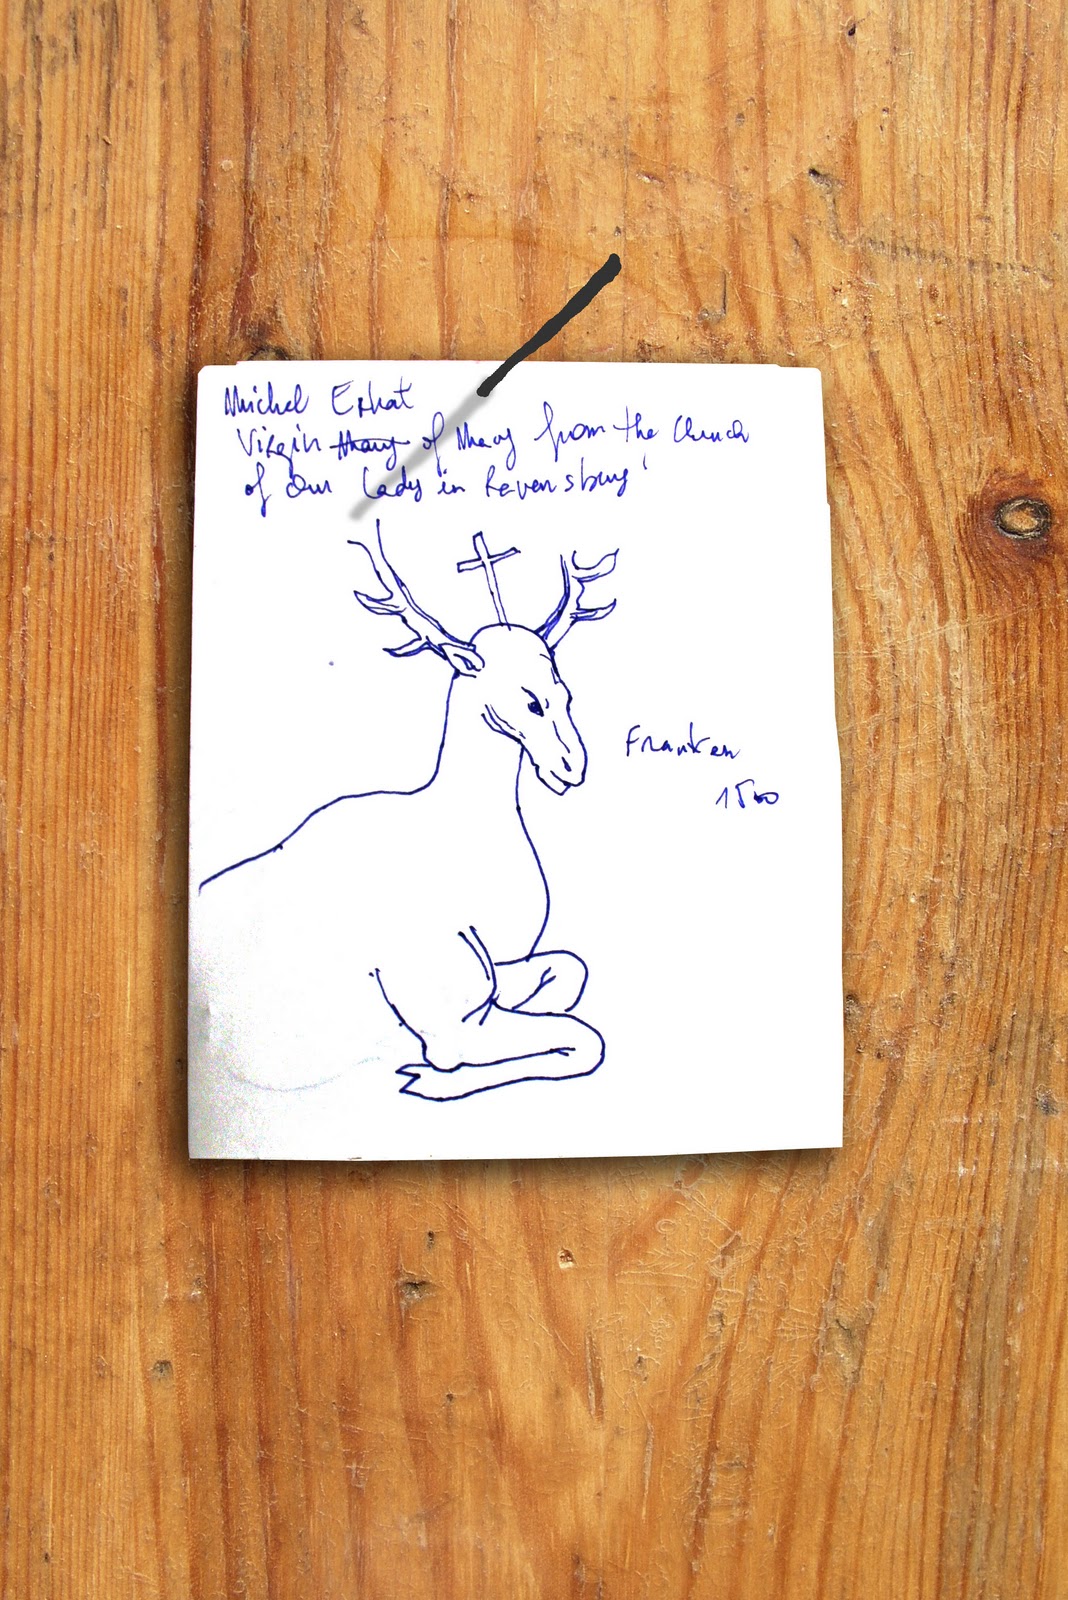 Michel Erhat
Virgin Mary of Mary from the Church
of Our Lady in Ravensburg
Franken
1500